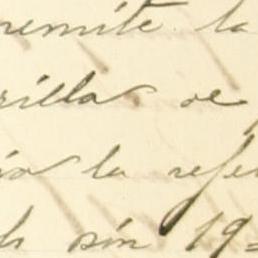 remite la
rilla de
la refe
sin 19